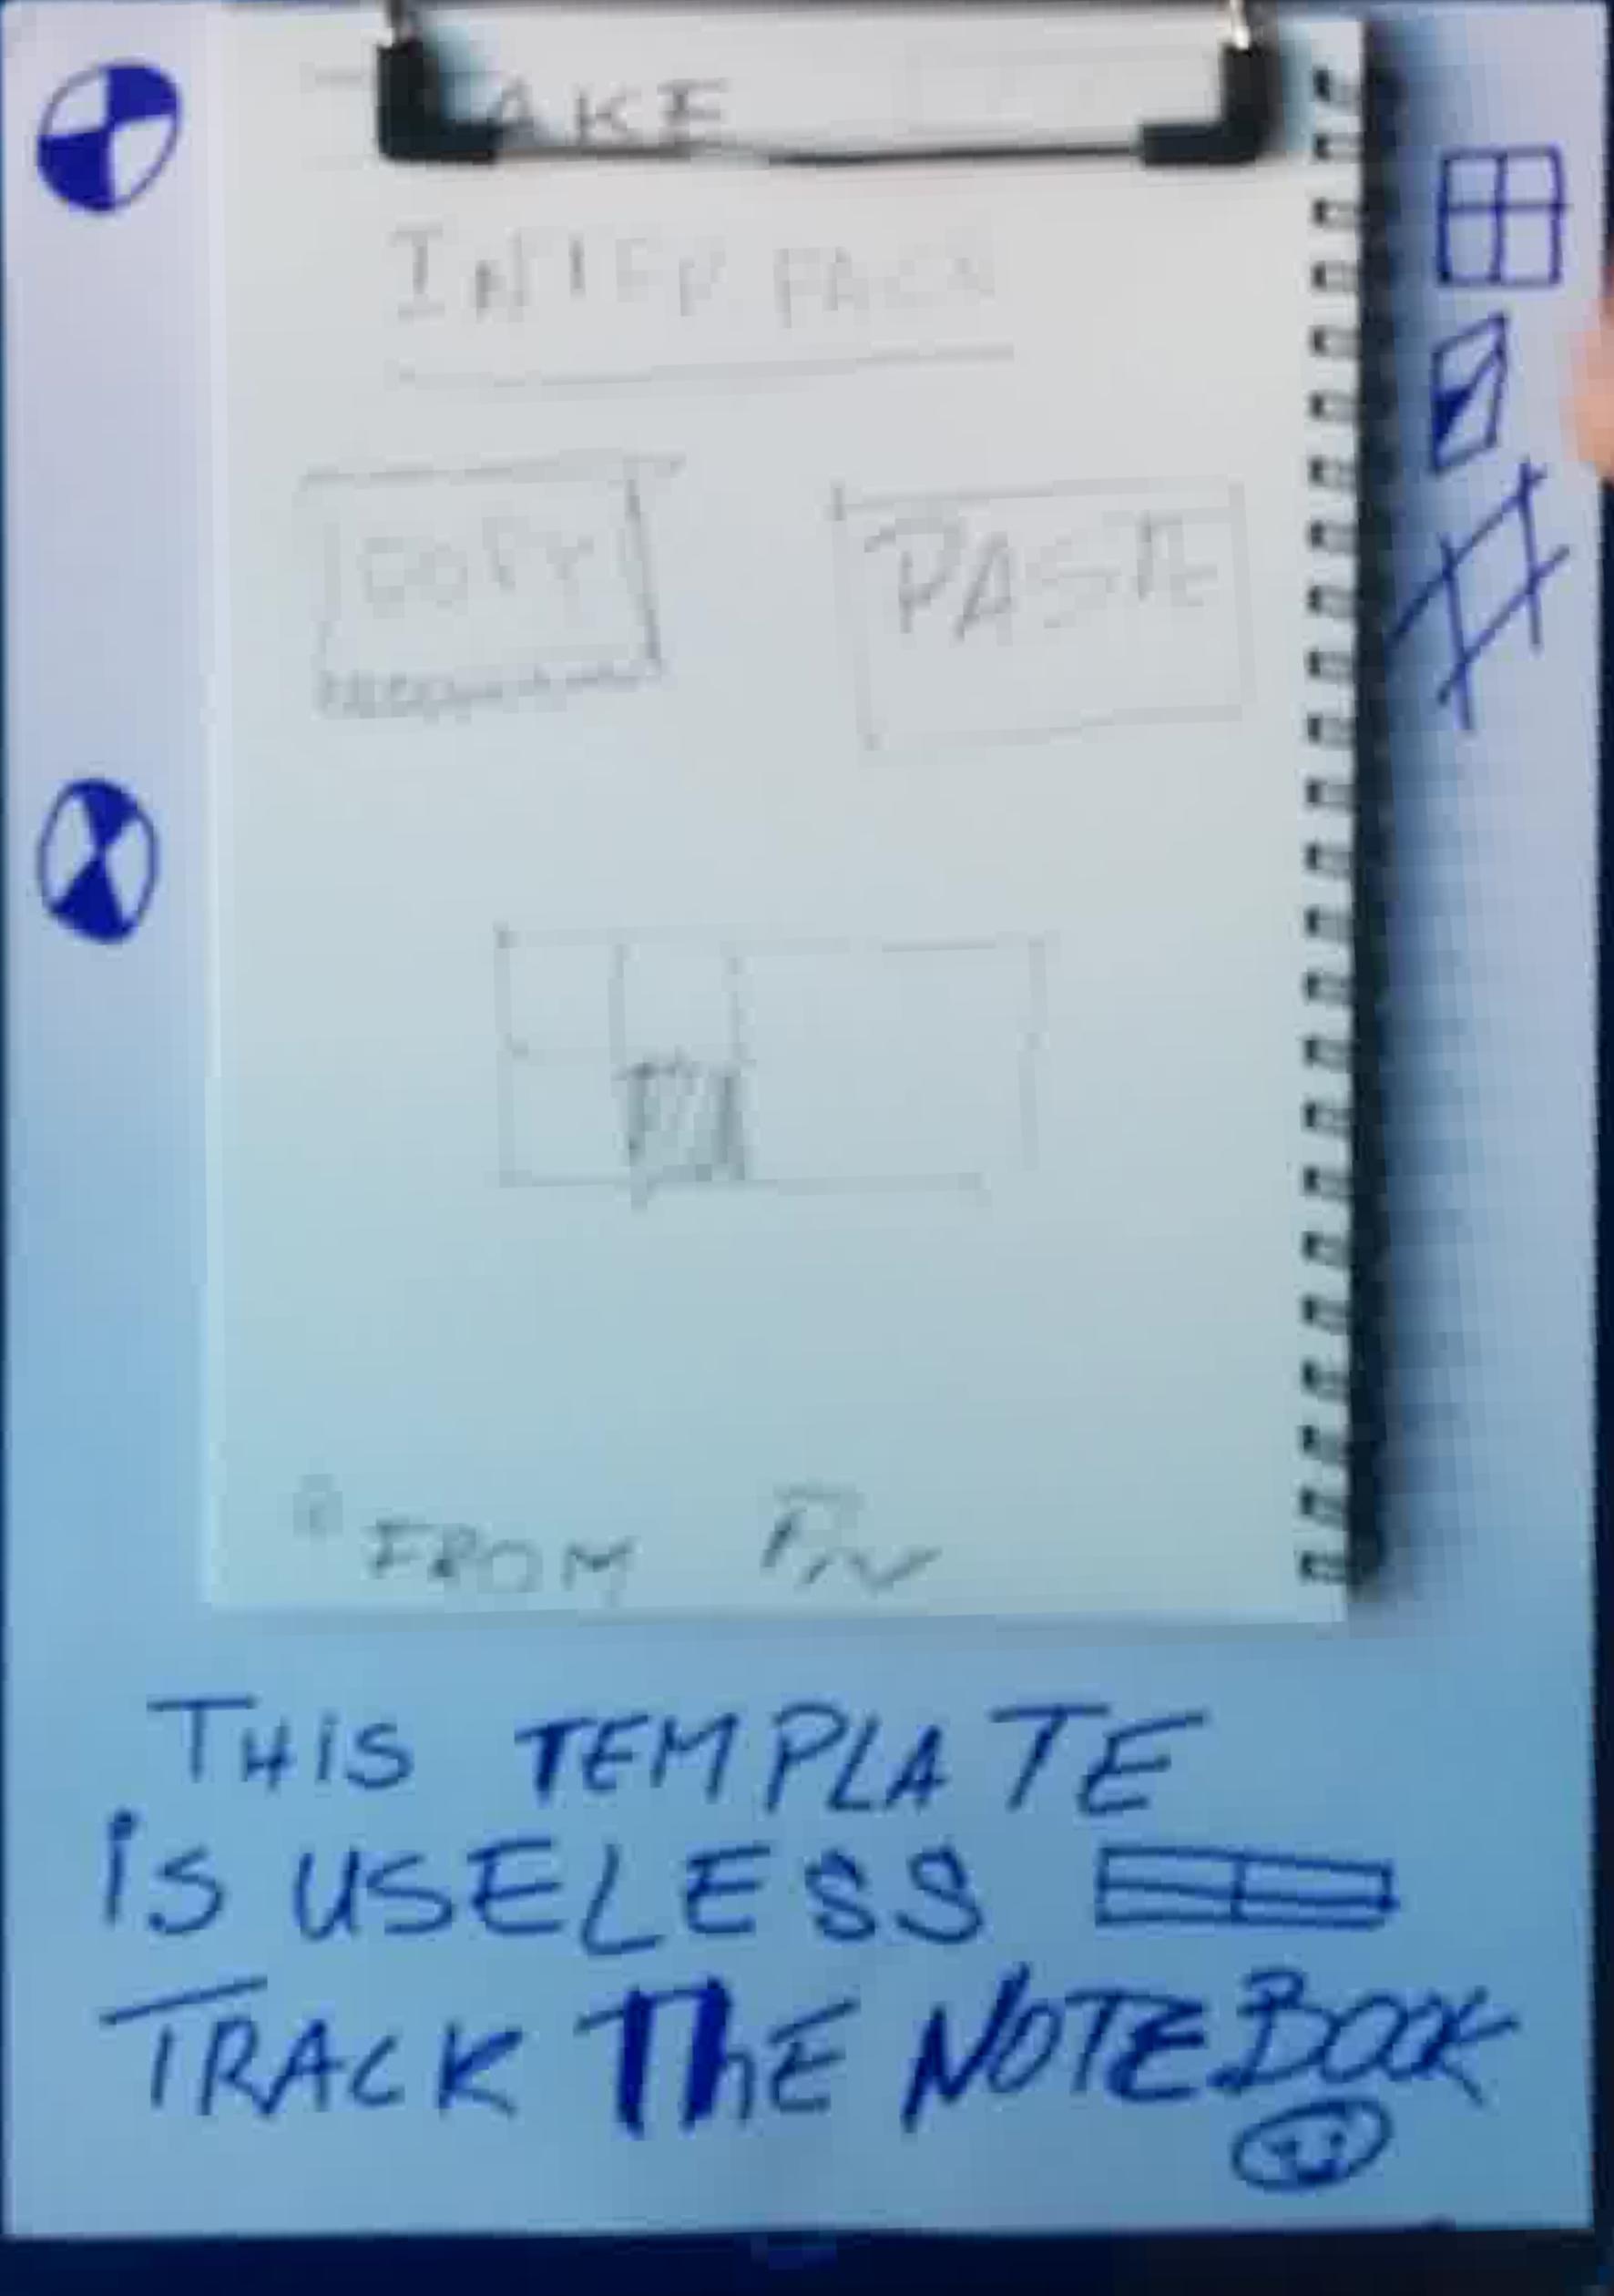 AKE
INTERFACE
COPY PASTE
PA
FROM
THIS TEMPLATE
iS USELESS
TRACK ThE NOTEBOOK